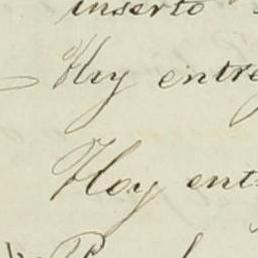 inserto
Hoy entre
Hoy ent